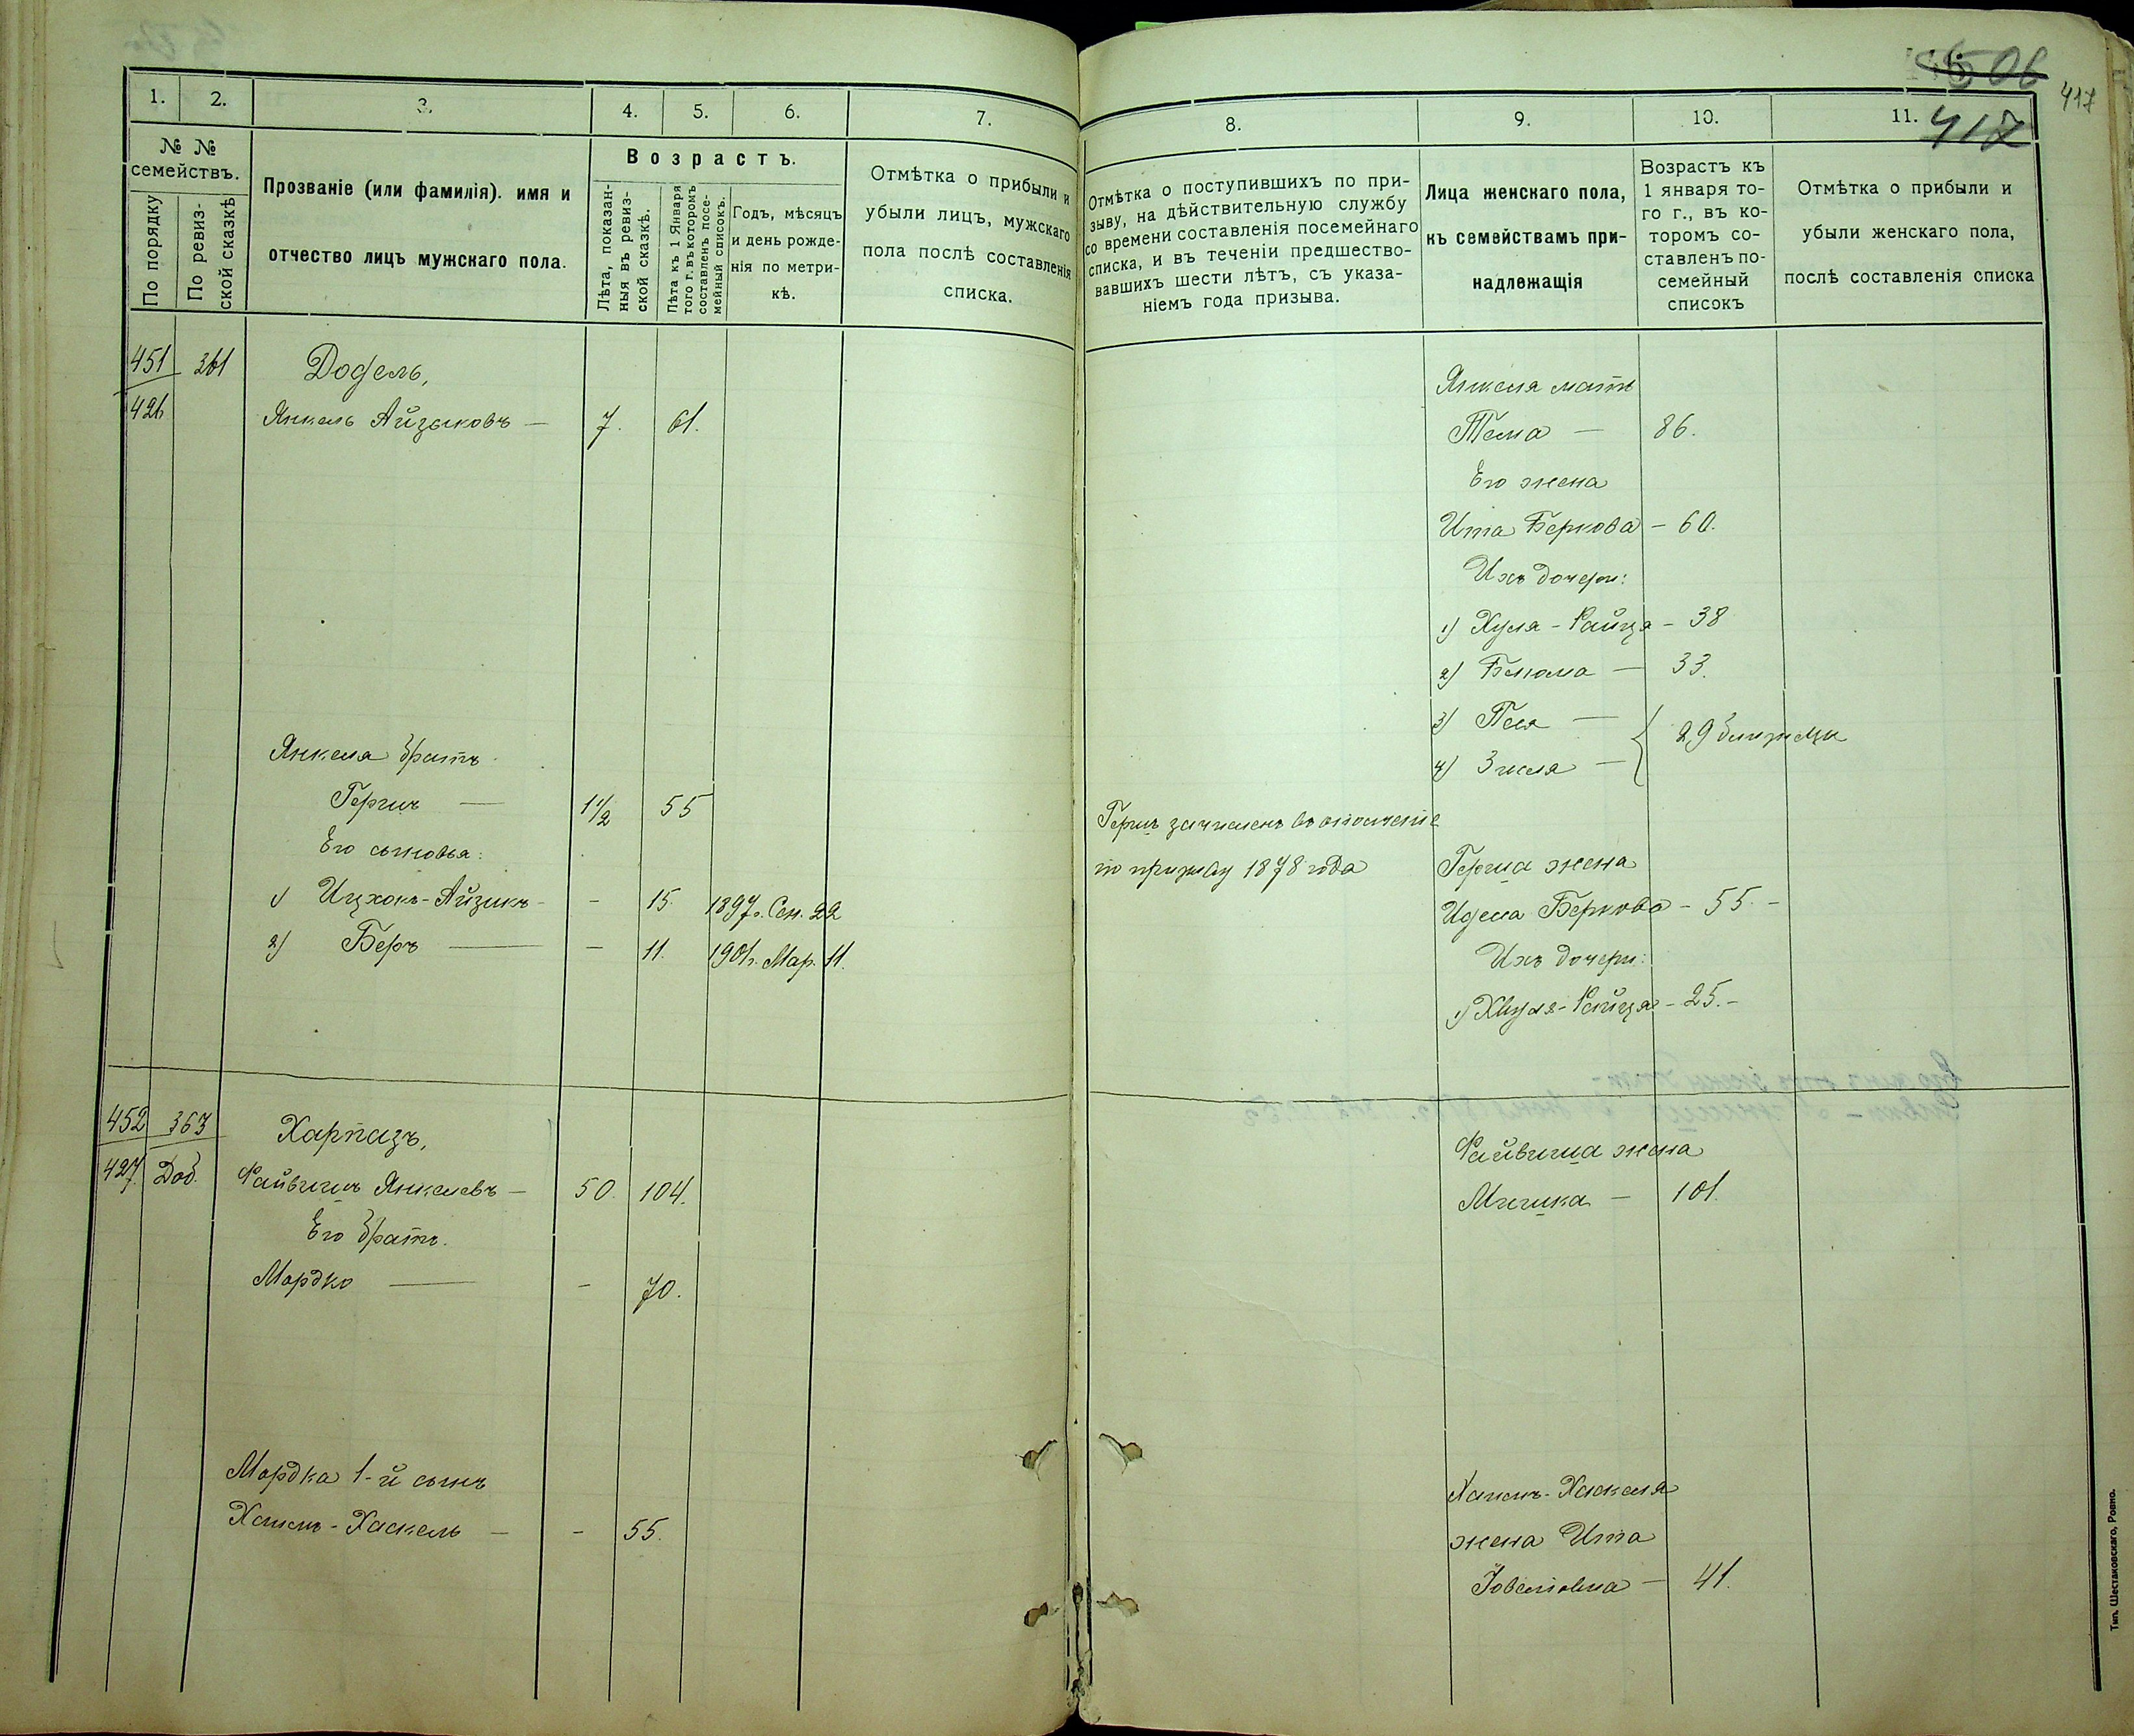 506
417
417
1. 2. 3. 4. 5. 6. 7.
№ № семействъ.
По порядку
По ревизской сказкѣ
Прозваніе (или фамилія). имя и
отчество лицъ мужскаго пола.
Возрастъ.
Лѣта, показанныя въ ревизской сказкѣ.
Лѣта къ 1 Января того г. въ которомъ составленъ посемейный списокъ.
Годъ, мѣсяцъ
и день рожде-
нія по метри-
кѣ.
Отмѣтка о прибыли и
убыли лицъ, мужскаго
пола послѣ составленія
списка.
8. 9. 10. 11.
Отмѣтка о поступившихъ по при-
зыву, на дѣйствительную службу
со времени составленія посемейнаго
списка, и въ теченіи предшество-
вавшихъ шести лѣтъ, съ указа-
ніемъ года призыва.
Лица женскаго пола,
къ семействамъ при-
надлежащія
Возрастъ къ
1 января то-
го г., въ ко-
торомъ со-
ставленъ по-
семейный
списокъ
Отмѣтка о прибыли и
убыли женскаго пола,
послѣ составленія списка
451 361 Додель,
426 Янкель Айзыковъ — 7. 61.
Янкеля мать
Тема — 86.
Его жена
Ита Беркова — 60.
Ихъ дочери:
1) Хуля-Райця — 38
2) Бенома — 33.
3) Песя —
4) Зисля — 29 близнецы
Янкеля братъ
Гершъ — 1 1/2 55
Его сыновья:
1) Ицхокъ-Айзикъ - - 15. 1897г. Сен. 22
2) Беръ — - 11. 1901г. Мар. 11.
Гершъ зачисленъ въ ополченіе
по призыву 1878 года
Герша жена
Идеса Беркова - 55. -
Ихъ дочери:
1) Хвуля-Рейця - 25. -
452 363 Харпазъ,
427. Доб. Файвишъ Янкелевъ — 50. 104.
Его братъ.
Мордко — - 70.
Файвиша жена
Мишка — 101.
Мордка 1-й сынъ
Хаимъ-Хаскель — - 55.
Хаимъ-Хаскеля
жена Ита
— 41.
Тип. Шестаковскаго, Ровно.